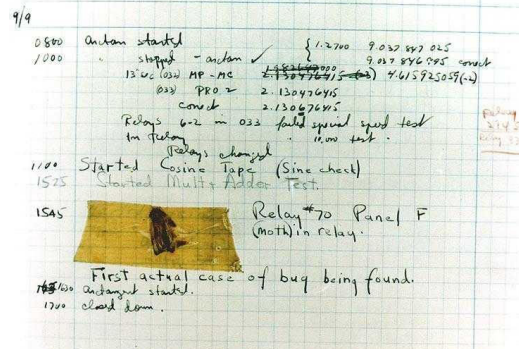 9/9
0800 arctan started { 1.2700 9.037 847 025
1000 " stopped - arctan ✓ 9.037 846 995 correct
13"uc (032) MP-MC 2.130476415 (-3) 4.615925059(-2)
(033) PRO 2 2.130476415
correct 2.130676415
Relays 6-2 in 033 failed special speed test
in relay " 10,000 test .
Relays changed
1100 Started Cosine Tape (Sine check)
1525 Started Mult + Adder Test.
1545 Relay #70 Panel F
(moth) in relay.
First actual case of bug being found.
1630 arctangent started.
1700 closed down.
Relay